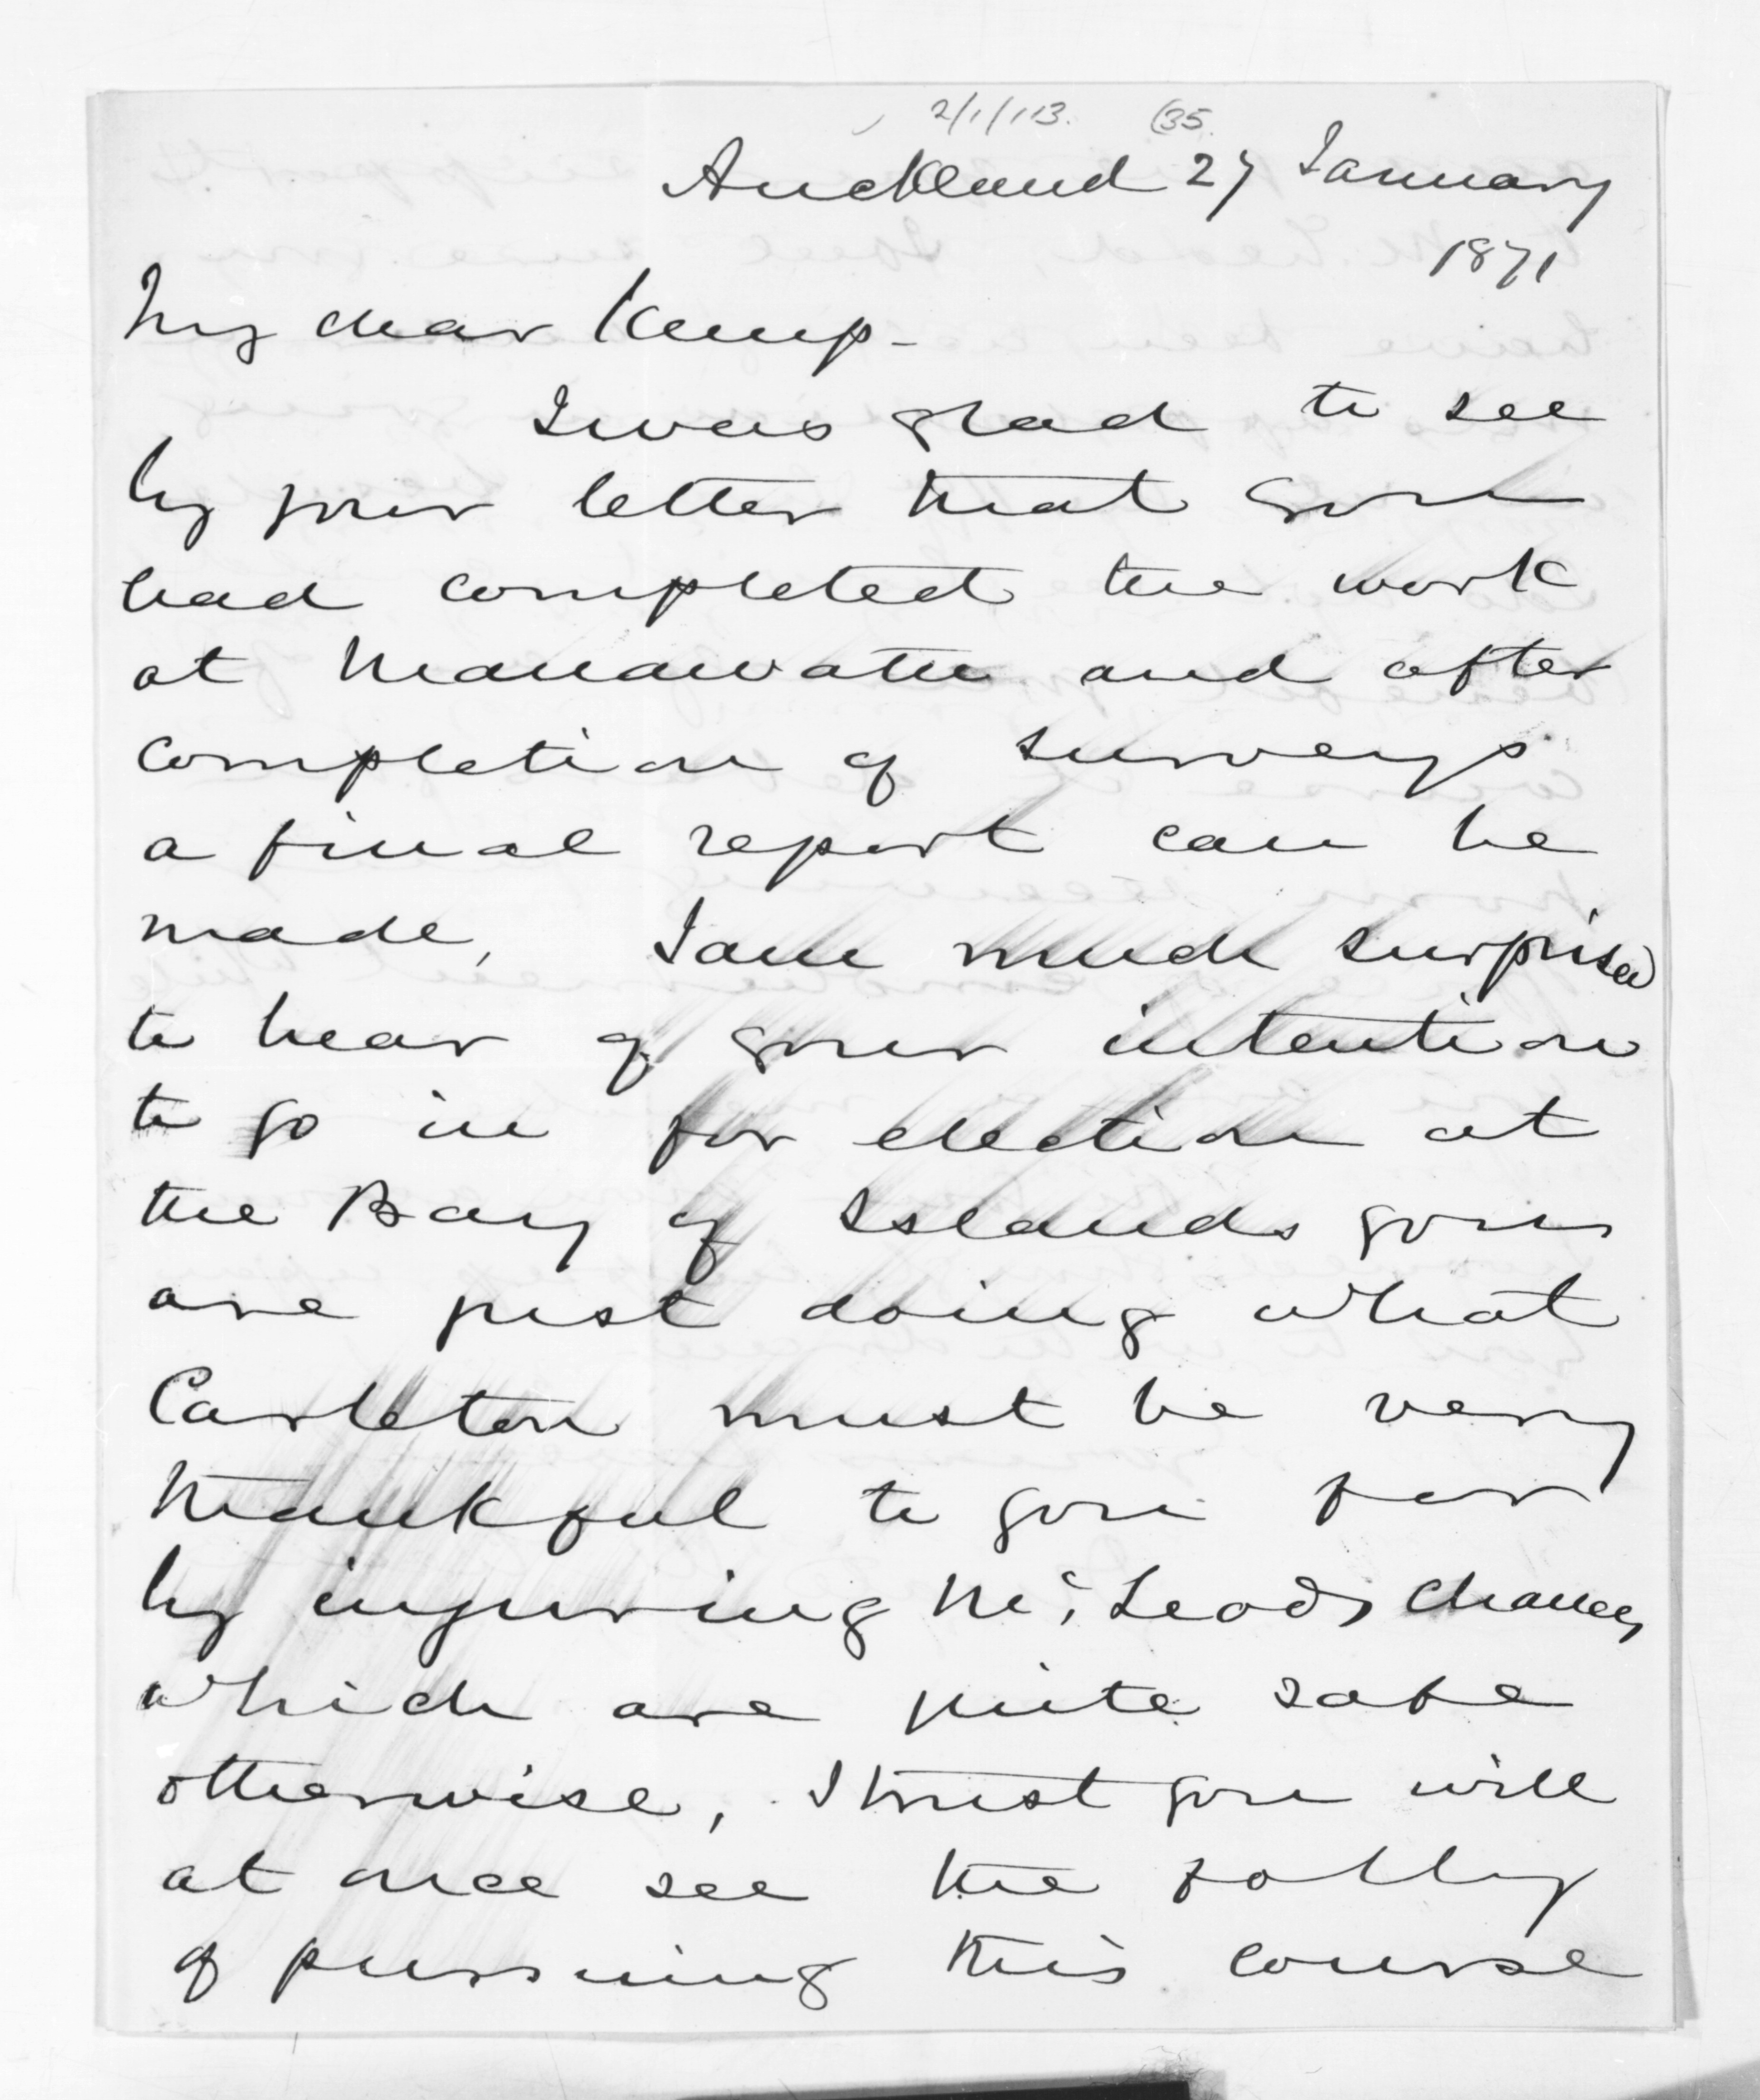 2/1/113. (35.
Auckland 27 January
1871
My dear Kemp -
I was glad to see
by your letter that you
had completed the work
at Manawatu and after
completion of surveys
a final report can be
made, I am much surprised
to hear of your intention
to go in for election at
the Bay of Islands you
are just doing what
Carleton must be very
thankful to you for
by injuring Mc,Leods chances
which are quite safe
otherwise, I trust you will
at once see the folly
of pursuing this course